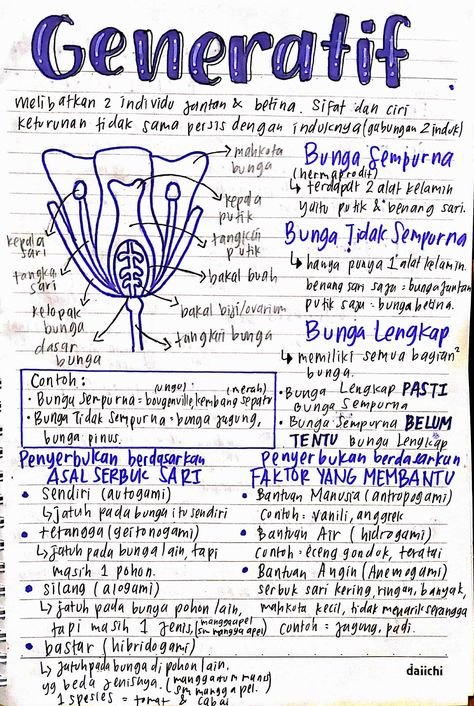 Generatif
melibatkan 2 individu jantan & betina. Sifat dan ciri
keturunan tidak sama persis dengan induknya (gabungan 2 induk)
mahkota
bunga
kepala
putik
tangkai
putik
bakal buah
bakal biji/ovarium
tangkai bunga
kepala
sari
tangkai
sari
kelopak
bunga
dasar
bunga
Bunga Sempurna
(hermaprodit)
↳ terdapat 2 alat kelamin
yaitu putik & benang sari.
Bunga Tidak Sempurna
↳ hanya punya 1 alat kelamin.
benang sari saja : bunga jantan
putik saja : bunga betina.
Bunga Lengkap
↳ memiliki semua bagian²
bunga.
• Bunga Lengkap PASTI
Bunga Sempurna
• Bunga Sempurna BELUM
TENTU Bunga Lengkap
Contoh :
(ungu) (merah)
• Bunga Sempurna = bougenville, kembang sepatu
• Bunga Tidak Sempurna = bunga jagung,
bunga pinus.
Penyerbukan berdasarkan
ASAL SERBUK SARI
• Sendiri (autogami)
↳ jatuh pada bunga itu sendiri
• tetangga (geitonogami)
↳ jatuh pada bunga lain, tapi
masih 1 pohon.
• silang (alogami)
↳ jatuh pada bunga pohon lain,
tapi masih 1 jenis. (mangga apel
sm mangga apel)
• bastar (hibridogami)
↳ jatuh pada bunga di pohon lain.
yg beda jenisnya. (mangga
sm mangga apel.)
1 spesies = tomat & cabai
Penyerbukan berdasarkan
FAKTOR YANG MEMBANTU
• Bantuan Manusia (antropogami)
Contoh = vanili, anggrek
• Bantuan Air (hidrogami)
Contoh = eceng gondok, teratai
• Bantuan Angin (Anemogami)
serbuk sari kering, ringan, banyak,
mahkota kecil, tidak menarik serangga
contoh = jagung, padi.
daiichi